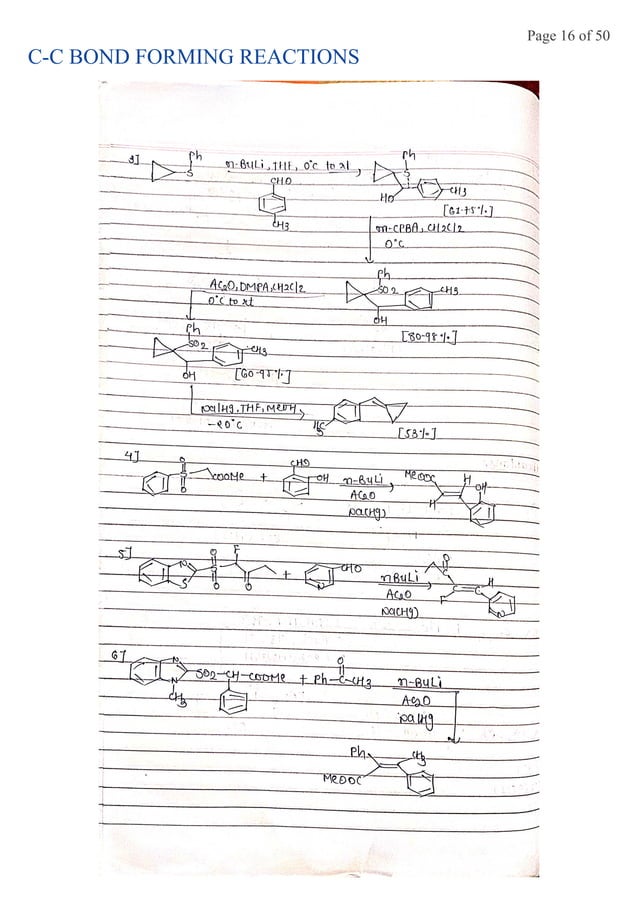 Page 16 of 50
C-C BOND FORMING REACTIONS
3]
Ph
S
n-BuLi, THF, 0°C to rt
CHO
CH3
Ph
S
HO
CH3
[61-75%]
m-CPBA, CH2Cl2
0°C
Ac2O, DMPA, CH2Cl2
0°C to rt
Ph
SO2
CH3
OH
[80-98%]
Ph
SO2
CH3
OH
[60-95%]
Na/Hg, THF, MeOH,
-20°C
[53%]
4]
O
S
O
COOMe
+
CHO
OH
n-BuLi
Ac2O
Na(Hg)
MeOOC
H
H
OH
5]
N
S
O
S
O
F
O
+
CHO
N
nBuLi
Ac2O
Na(Hg)
O
F
C
C
H
N
6]
N
N
CH3
SO2-CH-COOMe
+
O
Ph-C-CH3
n-BuLi
Ac2O
Na/Hg
Ph
CH3
MeOOC